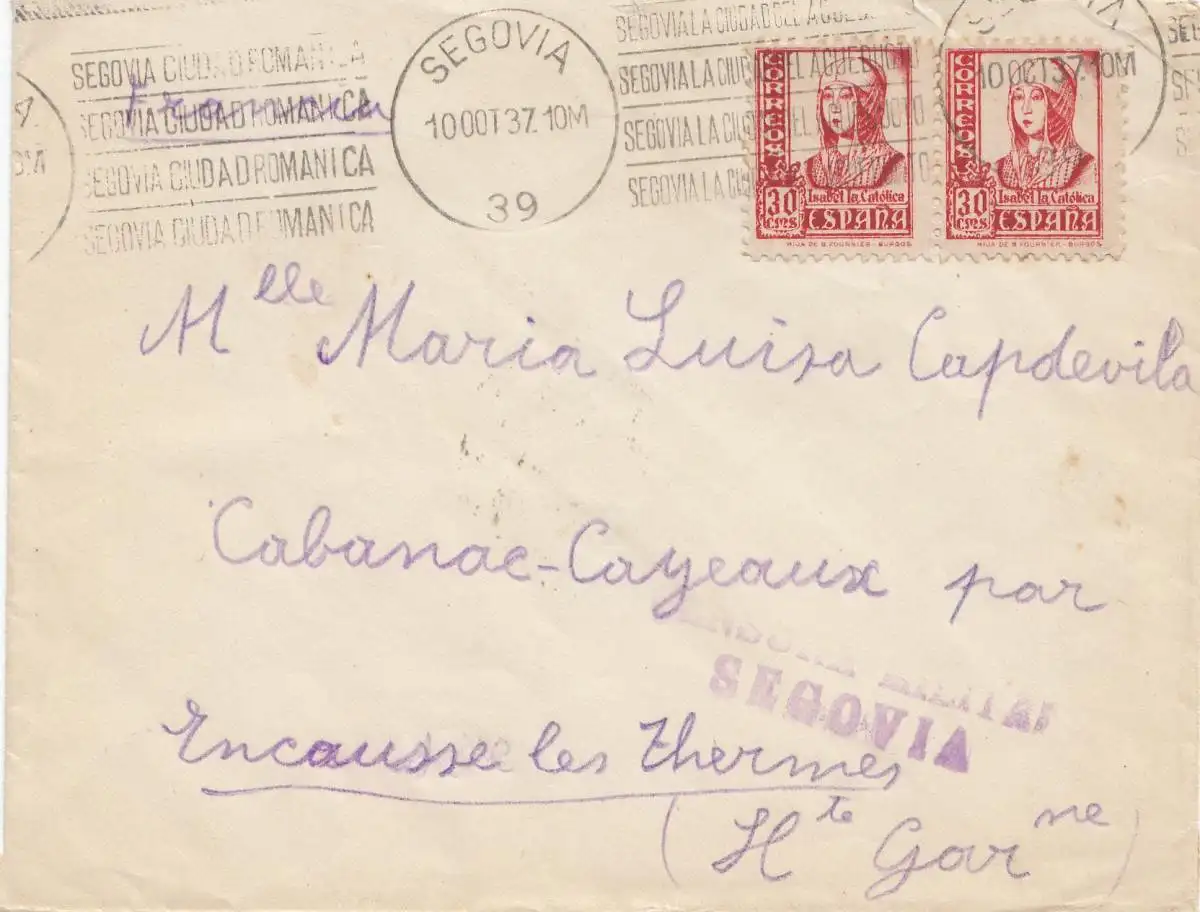 SEGOVIA CIUDAD ROMANICA
SEGOVIA CIUDAD ROMANICA
SEGOVIA CIUDAD ROMANICA
SEGOVIA CIUDAD ROMANICA
SEGOVIA
10 OCT 37. 10M
39
SEGOVIA LA CIUDAD DEL ACUEDUCTO
SEGOVIA LA CIUDAD DEL ACUEDUCTO
SEGOVIA LA CIUDAD DEL ACUEDUCTO
SEGOVIA LA CIUDAD DEL ACUEDUCTO
10 OCT 37. 10M
CORREOS
30 CMS
Isabel la Católica
ESPAÑA
HIJA DE B. FOURNIER - BURGOS
CORREOS
30 CMS
Isabel la Católica
ESPAÑA
HIJA DE B. FOURNIER - BURGOS
Mlle Maria Luisa Capdevila
Cabanac-Cayeaux par
CENSURA MILITAR
SEGOVIA
Encausse les Thermes
(Hte Garne)